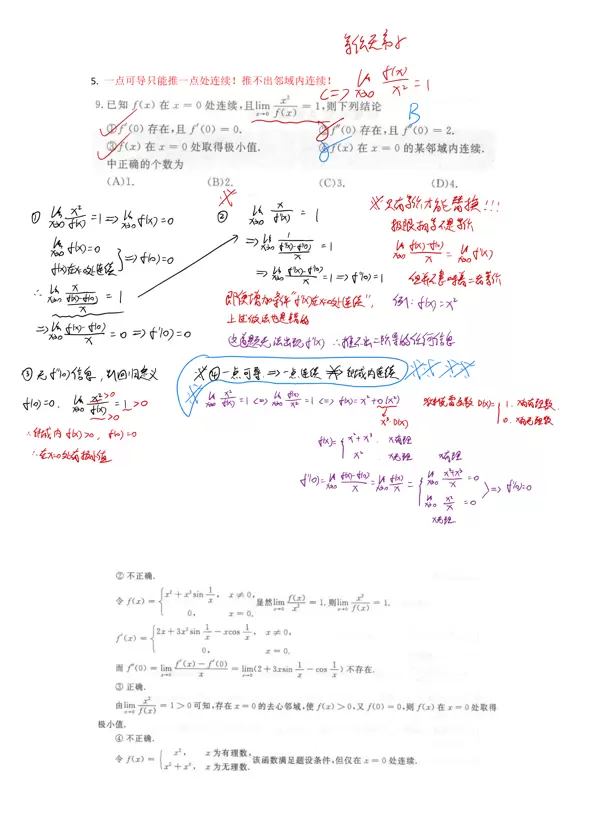 等价无穷小
<=> lim x→0 f(x)/x² = 1
5. 一点可导只能推一点处连续！推不出邻域内连续！
9. 已知 f(x) 在 x = 0 处连续,且 lim x→0 x²/f(x) = 1,则下列结论
B
①f′(0) 存在,且 f′(0) = 0. ②f″(0) 存在,且 f″(0) = 2.
③f(x) 在 x = 0 处取得极小值. ④f(x) 在 x = 0 的某邻域内连续.
中正确的个数为
(A)1. (B)2. (C)3. (D)4.
① lim x→0 x²/f(x) = 1 => lim x→0 f(x) = 0
lim x→0 f(x) = 0
f(x)在x=0处连续 } => f(0) = 0
∴ lim x→0 x/((f(x)-f(0))/x) = 1
=> lim x→0 (f(x)-f(0))/x = 0 => f′(0) = 0
② lim x→0 x/f′(x) = 1
=> lim x→0 1/((f′(x)-f′(0))/x) = 1
=> lim x→0 (f′(x)-f′(0))/x = 1 => f″(0) = 1
即使增加条件"f′(x)在x=0处连续",
上述做法也是错的
※只有等价才能替换!!!
极限相等不是等价
lim x→0 (f(x)-f(0))/x = lim x→0 f′(x)
但并不意味着二者等价
例: f(x) = x²
∴推不出二阶导的任何信息
③ 无 f″(0) 信息, 只能回归定义
f(0) = 0. lim x→0 x²/f(x) = 1 > 0
>0
>0
∴邻域内 f(x) > 0, f(0) = 0
∴在x=0处有极小值
※④ 一点可导 => 一点连续 ≠> 邻域内连续
lim x→0 x²/f(x) = 1 <=> lim x→0 f(x)/x² = 1 <=> f(x) = x² + o(x²)
x³·D(x)
狄利克雷函数 D(x) = { 1. x为有理数.
0. x为无理数.
f(x) = { x² + x³. x有理
x². x无理
f′(0) = lim x→0 (f(x)-f(0))/x = lim x→0 f(x)/x = { lim x→0 (x²+x³)/x = 0 x有理
lim x→0 x²/x = 0 x无理. } => f′(0) = 0
② 不正确.
令 f(x) = { x² + x³sin 1/x, x ≠ 0,
0, x = 0. 显然 lim x→0 f(x)/x² = 1. 则 lim x→0 x²/f(x) = 1.
f′(x) = { 2x + 3x²sin 1/x − xcos 1/x, x ≠ 0,
0, x = 0.
而 f″(0) = lim x→0 (f′(x) − f′(0))/x = lim x→0 (2 + 3xsin 1/x − cos 1/x) 不存在.
③ 正确.
由 lim x→0 x²/f(x) = 1 > 0 可知,存在 x = 0 的去心邻域,使 f(x) > 0,又 f(0) = 0,则 f(x) 在 x = 0 处取得
极小值.
④ 不正确.
令 f(x) = { x², x 为有理数,
x² + x³, x 为无理数. 该函数满足题设条件,但仅在 x = 0 处连续.